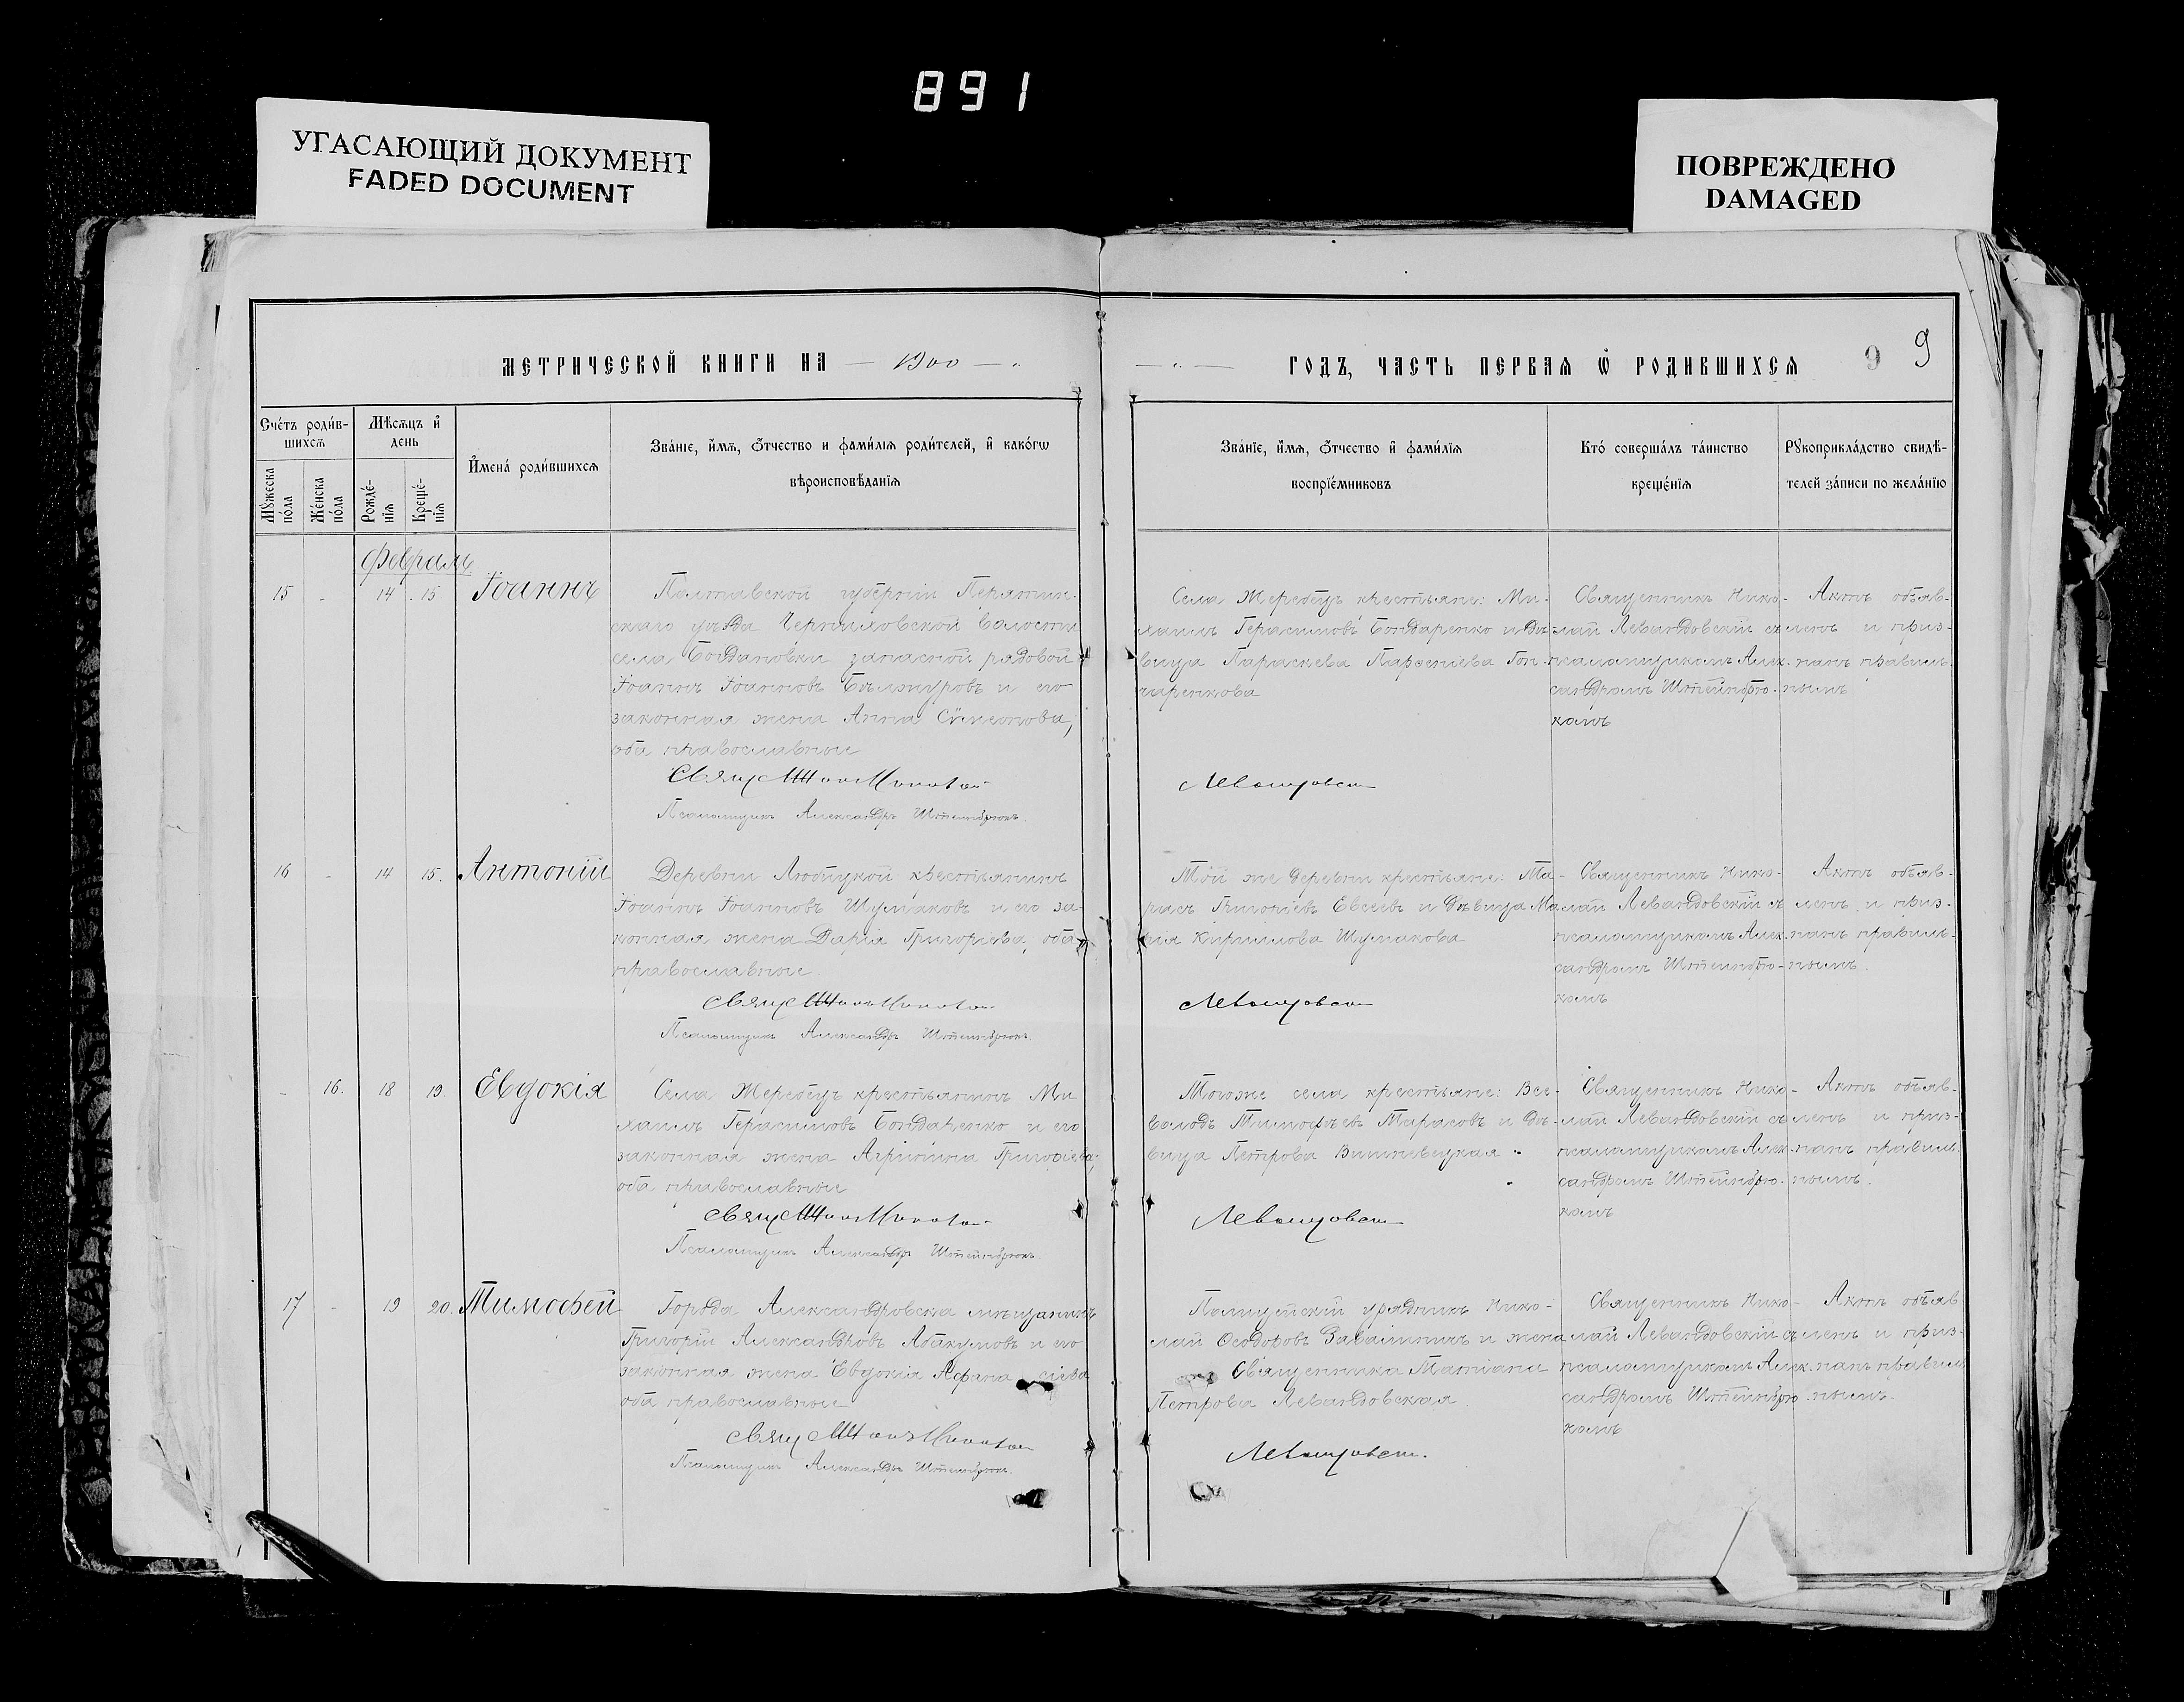 891
УГАСАЮЩИЙ ДОКУМЕНТ
FADED DOCUMENT
ПОВРЕЖДЕНО
DAMAGED
МЕТРИЧЕСКОЙ КНИГИ НА — 1900 — "
— " — ГОДЪ, ЧАСТЬ ПЕРВАЯ Ѡ РОДИВШИХСЯ
9 9
Счётъ роди́в-
шихсѧ
Мꙋжеска по́ла
Же́нска по́ла
Мѣсѧцъ и҆ день
Рожде́-
нїѧ
Креще́-
нїѧ
И҆мена́ роди́вшихсѧ
Зва́нїе, и҆́мѧ, о҆́тчество и фами́лїѧ роди́телей, и҆ како́гѡ
вѣроисповѣ́данїѧ
Зва́нїе, и҆́мѧ, о҆́тчество и҆ фами́лїѧ
воспрїе́мниковъ
Кто́ соверша́лъ та́инство
креще́нїѧ
Рꙋкоприкла́дство свидѣ́-
телей за́писи по жела́нїю
Февраль
15 - 14 15 Іоаннъ
Полтавской губерніи Пирятин-
скаго уѣзда Черняховской волости
села Богдановки запасной рядовой
Іоаннъ Іоанновъ и его
законная жена Анна Сѵмеонова,
оба православные
Свящ
Псаломщикъ Александръ Штейнбрюкъ
Села Жеребецъ крестьяне: Ми-
хаилъ Герасимовъ Бондаренко и дѣ-
вица Параскева Парѳеніева Гон-
чаренкова
Левандовскій
Священникъ Нико-
лай Левандовскій съ
псаломщикомъ Алек-
сандромъ Штейнбрю-
комъ
Актъ объяв-
ленъ и приз-
нанъ правиль-
нымъ
16 - 14 15. Антоній
Деревни Любицкой крестьянинъ
Іоаннъ Іоанновъ Шумаковъ и его за-
конная жена Дарія Григоріева, оба
православные.
Свящ
Псаломщикъ Александръ Штейнбрюкъ.
Той же деревни крестьяне: Та-
расъ Григоріевъ Евсеевъ и дѣвица Ма-
рія Кириллова Шумакова
Левандовскій
Священникъ Нико-
лай Левандовскій съ
псаломщикомъ Алек-
сандромъ Штейнбрю-
комъ
Актъ объяв-
ленъ и приз-
нанъ правиль-
нымъ.
- 16. 18 19. Евдокія
Села Жеребецъ крестьянинъ Ми-
хаилъ Герасимовъ Бондаренко и его
законная жена Агриппина Григоріева,
оба православные
Свящ
Псаломщикъ Александръ Штейнбрюкъ
Тогоже села крестьяне: Все-
володъ Тимофѣевъ Тарасовъ и дѣ-
вица Петрова Вишневецкая
Левандовскій
Священникъ Нико-
лай Левандовскій съ
псаломщикомъ Алек-
сандромъ Штейнбрю-
комъ
Актъ объяв-
ленъ и приз-
нанъ правиль-
нымъ.
17 - 19 20. Тимоѳей
Города Александровска мѣщанинъ
Григорій Александровъ Абакумовъ и его
законная жена Евдокія Аѳана сіева
оба православные
Свящ
Псаломщикъ Александръ Штейнбрюкъ.
Полицейскій урядникъ Нико-
лай Ѳеодоровъ и жена
Священника Татіана
Петрова Левандовская.
Левандовскій.
Священникъ Нико-
лай Левандовскій съ
псаломщикомъ Алек-
сандромъ Штейнбрю-
комъ
Актъ объяв-
ленъ и приз-
нанъ правиль-
нымъ.